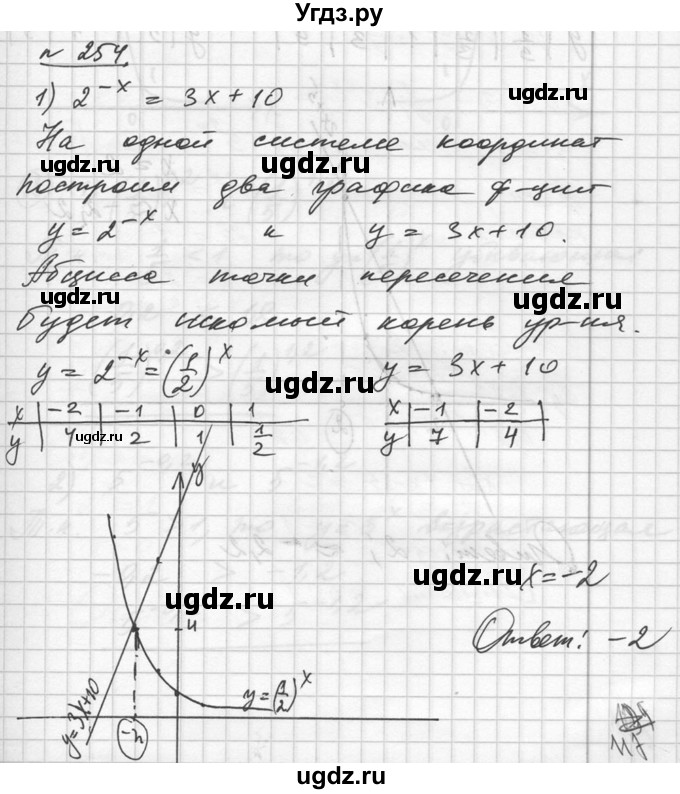 Угдз.ру
n 254.
1) 2^{-x} = 3x+10
На одной системе координат
построим два графика ф-ций
y=2^{-x} и y = 3x+10.
Абцисса точки пересечения
будет искомый корень ур-ния.
y = 2^{-x} = (1/2)^x y = 3x+10
x | -2 | -1 | 0 | 1 x | -1 | -2
y | 4 | 2 | 1 | 1/2 y | 7 | 4
y
4
x = -2
Ответ: -2
y=(1/2)^x
y=3x+10
-2
ugdz.ru
ugdz.ru
ugdz.ru
ugdz.ru
ugdz.ru
ugdz.ru
ugdz.ru
ugdz.ru
ugdz.ru
ugdz.ru
ugdz.ru
ugdz.ru
ugdz.ru